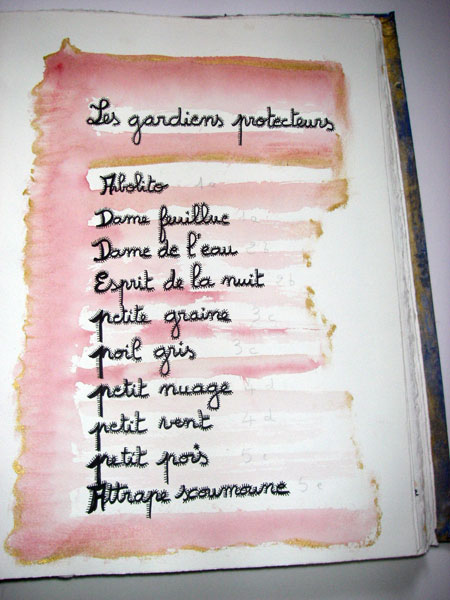 Les gardiens protecteurs
Abolito
Dame feuillue
Dame de l'eau
Esprit de la nuit
petite graine 3c
poil gris 3c
petit nuage
petit vent 4d
petit pois 5c
Attrape scoumoune 5c